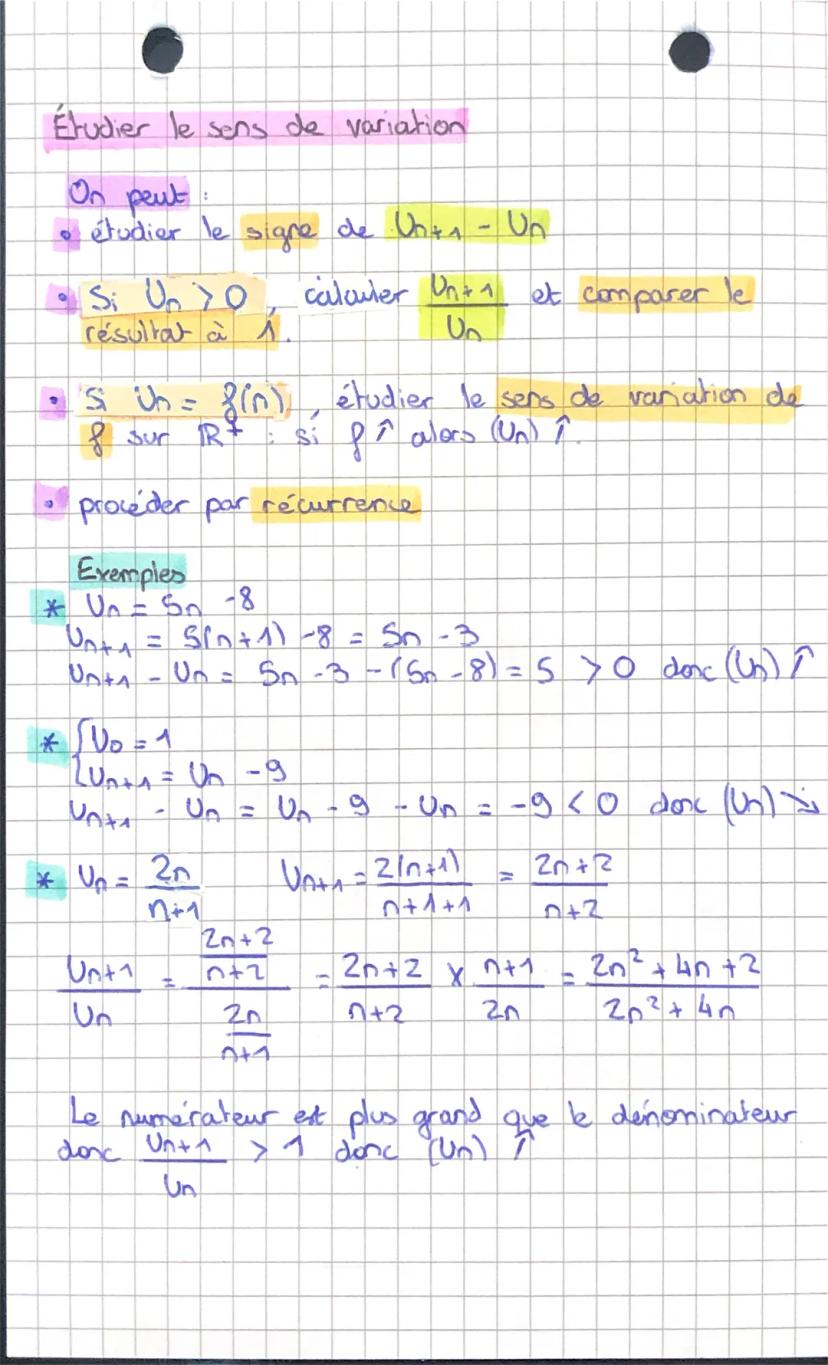 Étudier le sens de variation
On peut :
• étudier le signe de Un+1 - Un
• Si Un > 0, calculer Un+1/Un et comparer le
résultat à 1.
• Si Un = f(n), étudier le sens de variation de
f sur IR+ : si f ↑ alors (Un) ↑.
• procéder par récurrence
Exemples
* Un = 5n - 8
Un+1 = 5(n+1) - 8 = 5n - 3
Un+1 - Un = 5n - 3 - (5n - 8) = 5 > 0 donc (Un) ↑
* { U0 = 1
{ Un+1 = Un - 9
Un+1 - Un = Un - 9 - Un = -9 < 0 donc (Un) ↘
* Un = 2n/(n+1) Un+1 = 2(n+1)/(n+1+1) = (2n+2)/(n+2)
Un+1/Un = ((2n+2)/(n+2))/(2n/(n+1)) = (2n+2)/(n+2) × (n+1)/2n = (2n²+4n+2)/(2n²+4n)
Le numérateur est plus grand que le dénominateur
donc Un+1/Un > 1 donc (Un) ↑